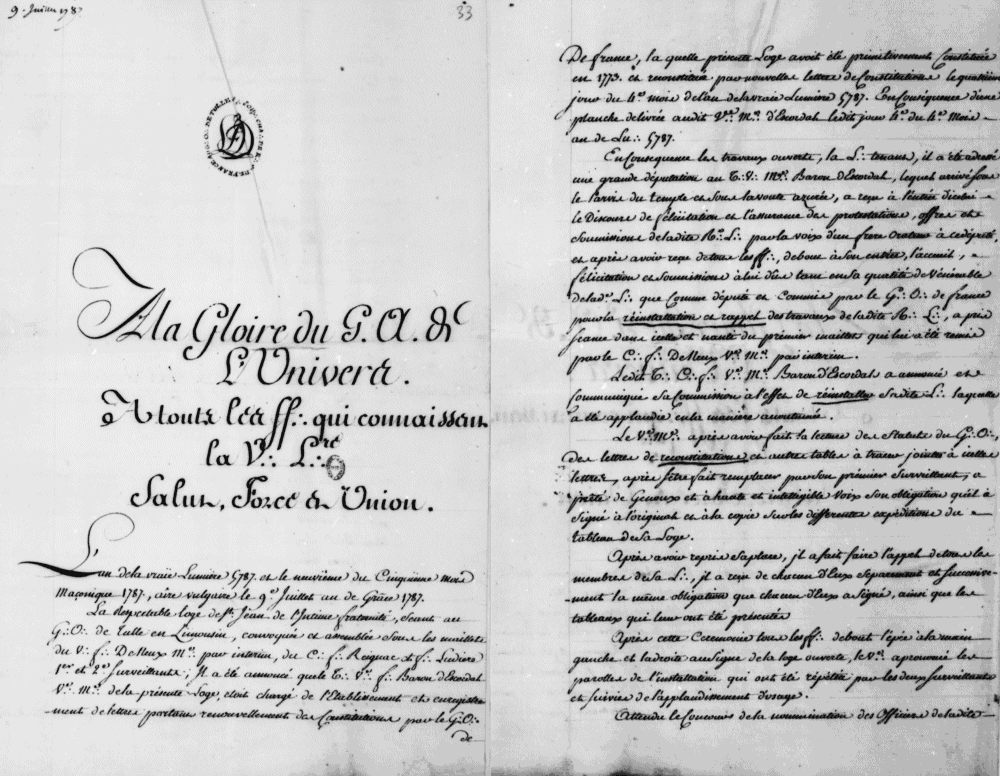 9. Juillet 1787
33
A la Gloire du G. A. de
L'Univers.
A touts les ff∴ qui connaissent
la V∴ L∴re
Salut, Force et Union.
L'an de la vraie Lumiere 5787. et le neuvième du Cinquième mois
Maçonique 1787., aire vulgaire le 9e Juillet an de Grace 1787.
La Respectable loge de St Jean de l'Intime fraternité, séant au
G∴ O∴ de Tulle en Limousin, convoquée et assemblée sous les maillets
du V∴ f∴ De Meux Me par interim, du C∴ f∴ Reignac et f∴ Ludière
1er et 2e Surveillants; Il a été annoncé que le T∴ V∴ f∴ Baron d'Escordal
Vble Me de la présente Loge, était chargé de l'Etablissement et enregistre
ment de lettres portant renouvellement des Constitutions par le G∴ O∴
de
De france, la quelle présente Loge avoit été primitivement Constituée
en 1773. et reconstituée par nouvelles lettres de Constitutions le quatrième
jour du 4e mois de l'an de la vraie Lumiere 5787. En Conséquence d'une
planche délivrée audit Vble Me d'Escordal le dit jour 4e du 4e Mois
an de Lu∴ 5787.
En Consequence les travaux ouverts, la L∴ tenant, il a été adressé
une grande députation au T∴ V∴ Me Baron d'Escordal, lequel arrivé sous
le Parvis du temple et sous la voute azurée, a reçu à l'entrée d'icelui
le Discours de félicitation et l'assurance des protestations, offres et
Soumissions de ladite Rble L∴ par la voix d'un frere Orateur à ce député,
et après avoir reçu de tous les ff∴, debout à son entrée, l'acceuil,
félicitation et soumission à lui dûs tant en sa qualité de Vénérable
de lad. L∴ que comme député et commis par le G∴ O∴ de france
pour la réinstallation et rappel des travaux de ladite R∴ L∴, a pris
séance dans icelle et nanti du premier maillet qui lui a été remis
par le C∴ f∴ De Meux Vble Me par interim.
Ledit T∴ C∴ f∴ Vble Me Baron d'Escordal a annoncé et
Communiqué sa Commission à l'effet de réinstaller sa dite L∴ laquelle
a été applaudie en la manière accoutumée.
Le Vble Me après avoir fait la lecture des Statuts du G∴ O∴,
des lettres de reconstitutions et autres tables à tracer jointes à icelles
lettres, après s'être fait remplacer par son premier Surveillant, a
prêté de Genoux et à haute et intelligible voix son obligation qu'il a
Signé à l'original et à la copie sur les differentes expéditions du
tableau de sa Loge.
Après avoir repris sa place, il a fait faire l'appel de tous les
membres de sa L∴, il a reçu de chacun d'Eux séparement et successive-
ment la même obligation que chacun d'Eux a Signé, ainsi que les
tableaux qui leur ont été presentés
Après cette Ceremonie tous les ff∴ debout l'épée à la main
gauche et la droite au Signe de la loge ouverte, le Vble a prononcé les
paroles de l'installation qui ont été répétées par les deux Surveillants
et suivies de l'applaudissement d'usage.
Attendu le Concours de la nommination des Officiers de ladite